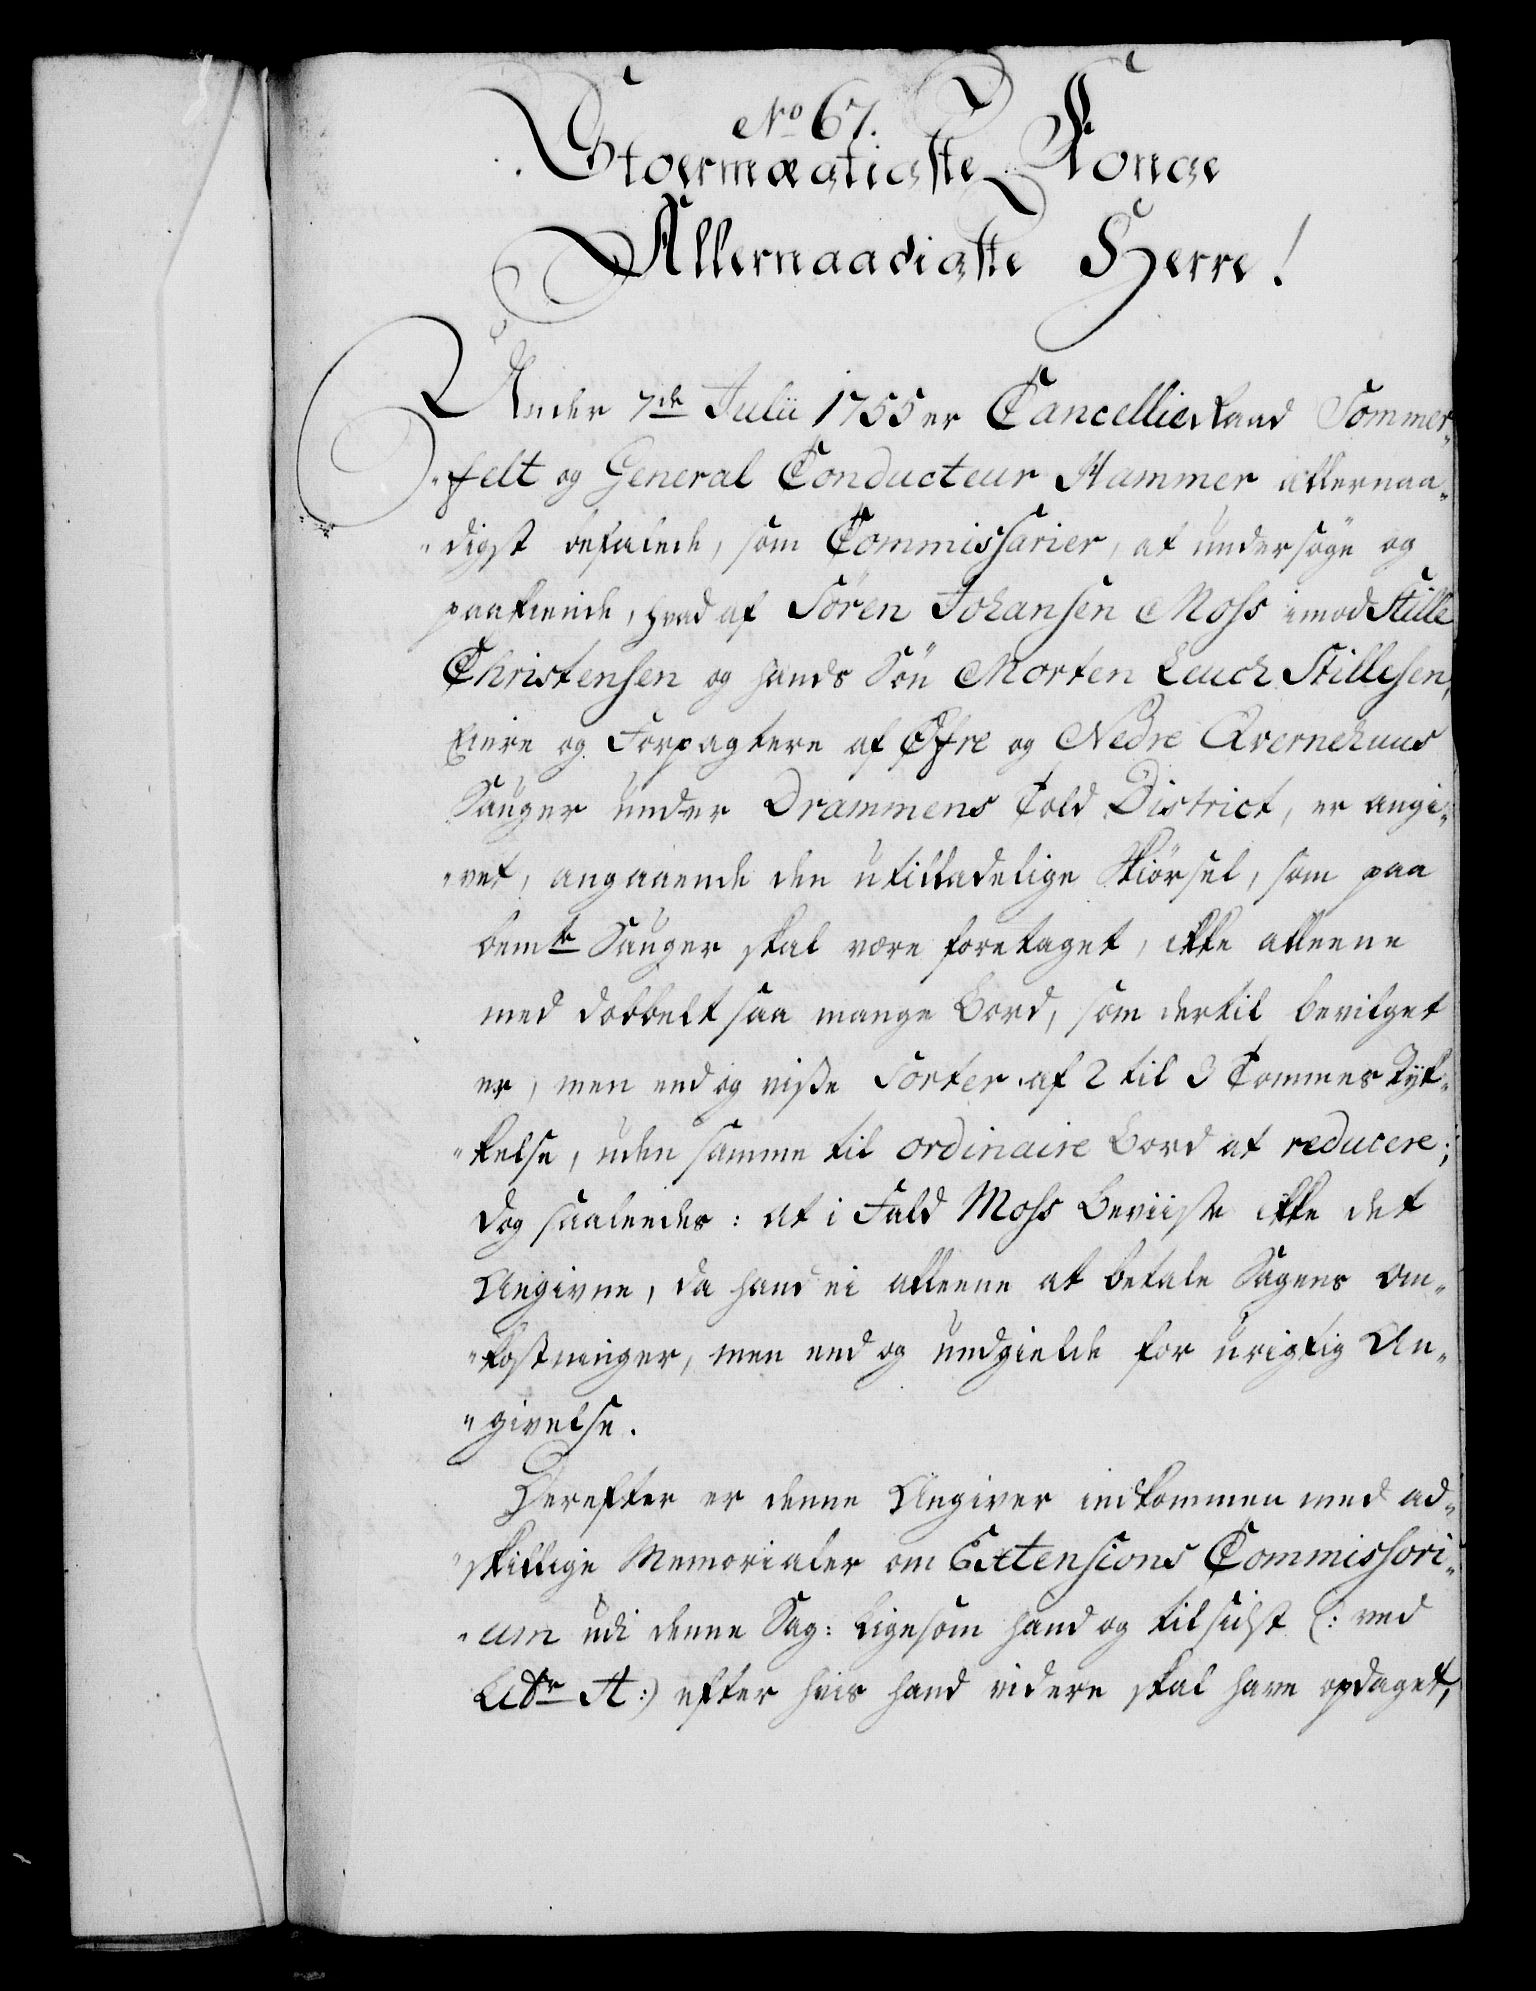 No 67.
Stoermægtigste Konge
Allernaadigste Herre!
Under 7de Julii 1755 er CancellieRaad Sommer„
„felt og General Conducteur Hammer allernaa„
„digst befalede, som Commissarier, at undersöge og
paakiende, hvad af Sören Johansen Moss imod Stille
Christensen og hands Sön Morten Leuch Stillesen,
Eiere og Forpagtere af Öfre og Nedre Qvernehuus
Sauger under Drammens Told District, er angi„
„vet, angaaende den utilladelige Skiörsel, som paa
bemte Sauger skal være foretaget, ikke alleene
med dobbelt saa mange Bord, som dertil bevilget
er, men end og visse Sorter af 2 til 3 Tommes Tyk„
„kelse, uden samme til ordinaire Bord at reducere;
dog saaledes: at i Fald Moss beviiste ikke det
Angivne, da hand ei alleene at betale Sagens Om„
„kostninger, men end og undgielde for urigtig An„
„givelse.
Derefter er denne Angiver indkommen med ad„
„skillige Memorialer om Extensions Commissori„
„um udi denne Sag: Ligesom hand og tilsidst (: ved
Litr A:) efter hvis hand videre skal have opdaget,